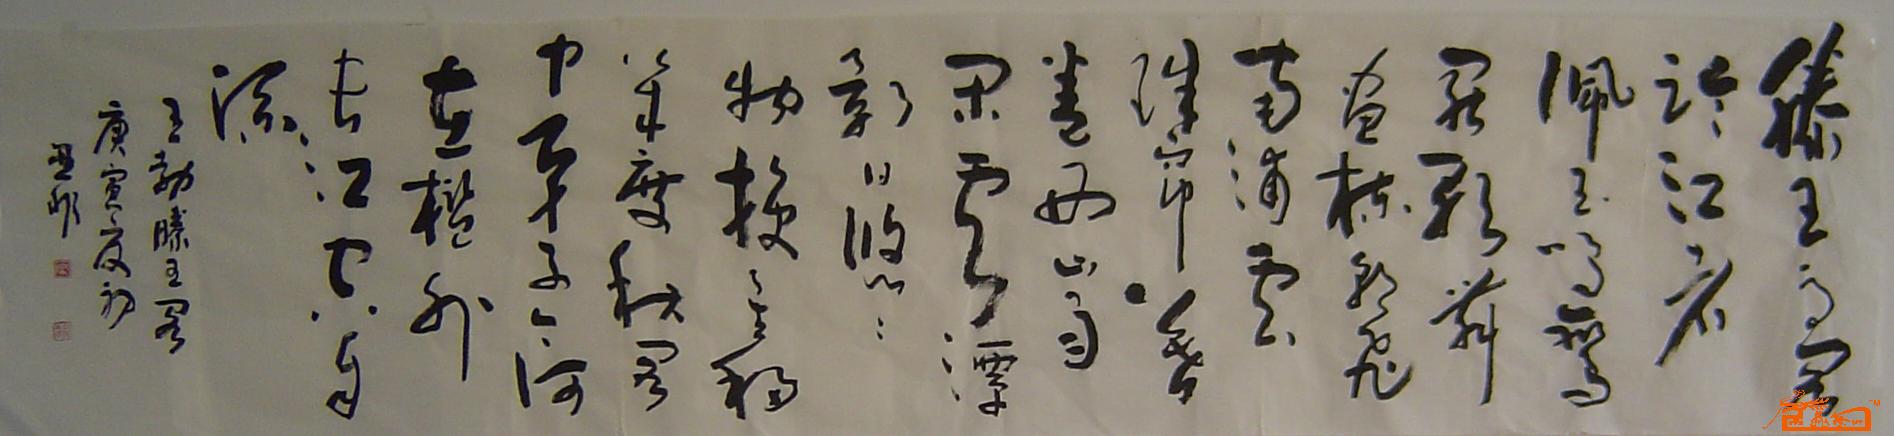 滕王高閣
臨江渚
佩玉鳴鸞
罷歌舞
畫棟朝飛
南浦雲
珠簾暮
卷西山雨
閑雲潭
影日悠々
物換星移
幾度秋閣
中帝子今何
在檻外
長江空自
流
王勃滕王閣
庚寅夏初